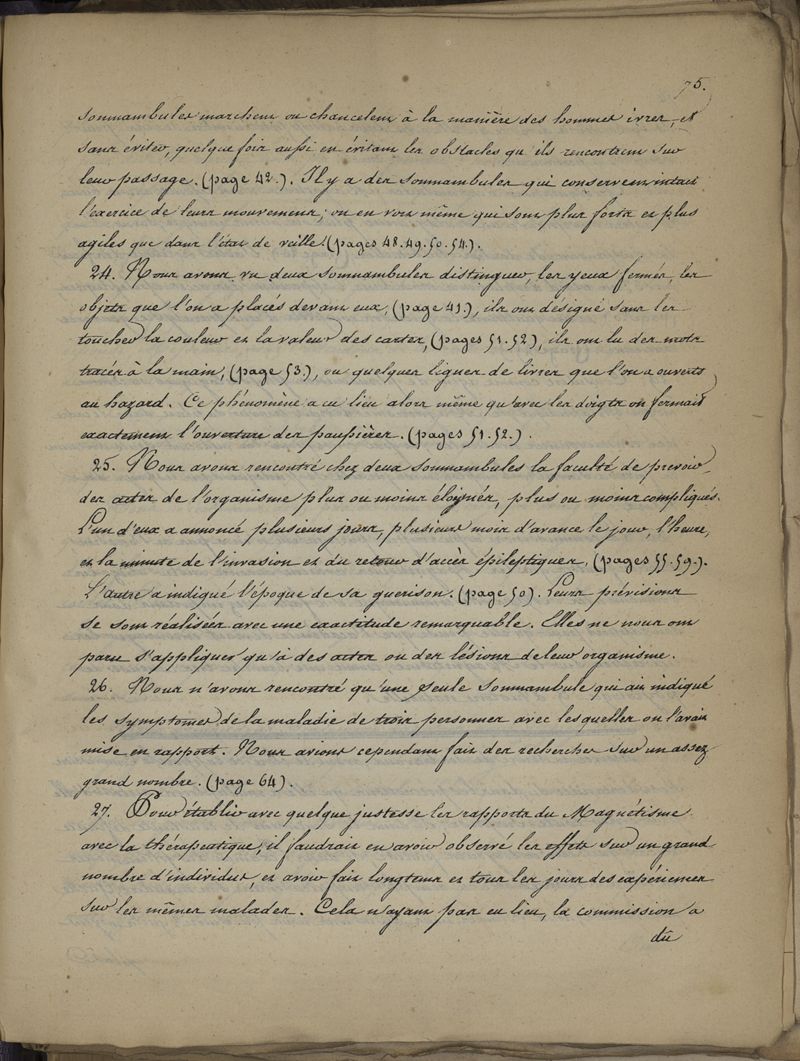 75.
somnambules marchent ou chancelent à la manière des hommes ivres, et
sans éviter, quelque fois aussi en évitant les obstacles qu'ils rencontrent sur
leur passage. (page 42.). Il y a des somnambules qui conservent intact
l'exercice de leurs mouvemens; on en voit même qui sont plus forts et plus
agiles que dans l'état de veille. (pages 48. 49. 50. 54.).
24. Nous avons vu deux somnambules distinguer, les yeux fermés, les
objets que l'on a placés devant eux, (page 41.), ils ont désigné sans les
toucher la couleur et la valeur des cartes, (pages 51. 52.), ils ont lu des mots
tracés à la main, (page 53.), ou quelques lignes de livres que l'on a ouverts
au hazard. Ce phénomène a eu lieu alors même qu'avec les doigts on fermait
exactement l'ouverture des paupières. (pages 51. 52.).
25. Nous avons rencontré chez deux somnambules la faculté de prevoir
des actes de l'organisme plus ou moins éloignés, plus ou moins compliqués.
L'un d'eux a annoncé plusieurs jours, plusieurs mois d'avance le jour, l'heure,
et la minute de l'invasion et du retour d'accès épileptiques, (pages 55. 59.).
L'autre a indiqué l'époque de sa guerison. (page 50). Leurs prévisions
se sont réalisées avec une exactitude remarquable. Elles ne nous ont
paru s'appliquer qu'à des actes ou des lésions de leur organisme.
26. Nous n'avons rencontré qu'une seule somnambule qui ait indiqué
les symptomes de la maladie de trois personnes avec lesquelles on l'avait
mise en rapport. Nous avions cependant fait des recherches sur un assez
grand nombre. (page 64).
27. Pour établir avec quelque justesse les rapports du Magnétisme
avec la thérapeutique, il faudrait en avoir observé les effets sur un grand
nombre d'individus, et avoir fait longtems et tous les jours des expériences
sur les mêmes malades. Cela n'ayant pas eu lieu, la commission a
dû